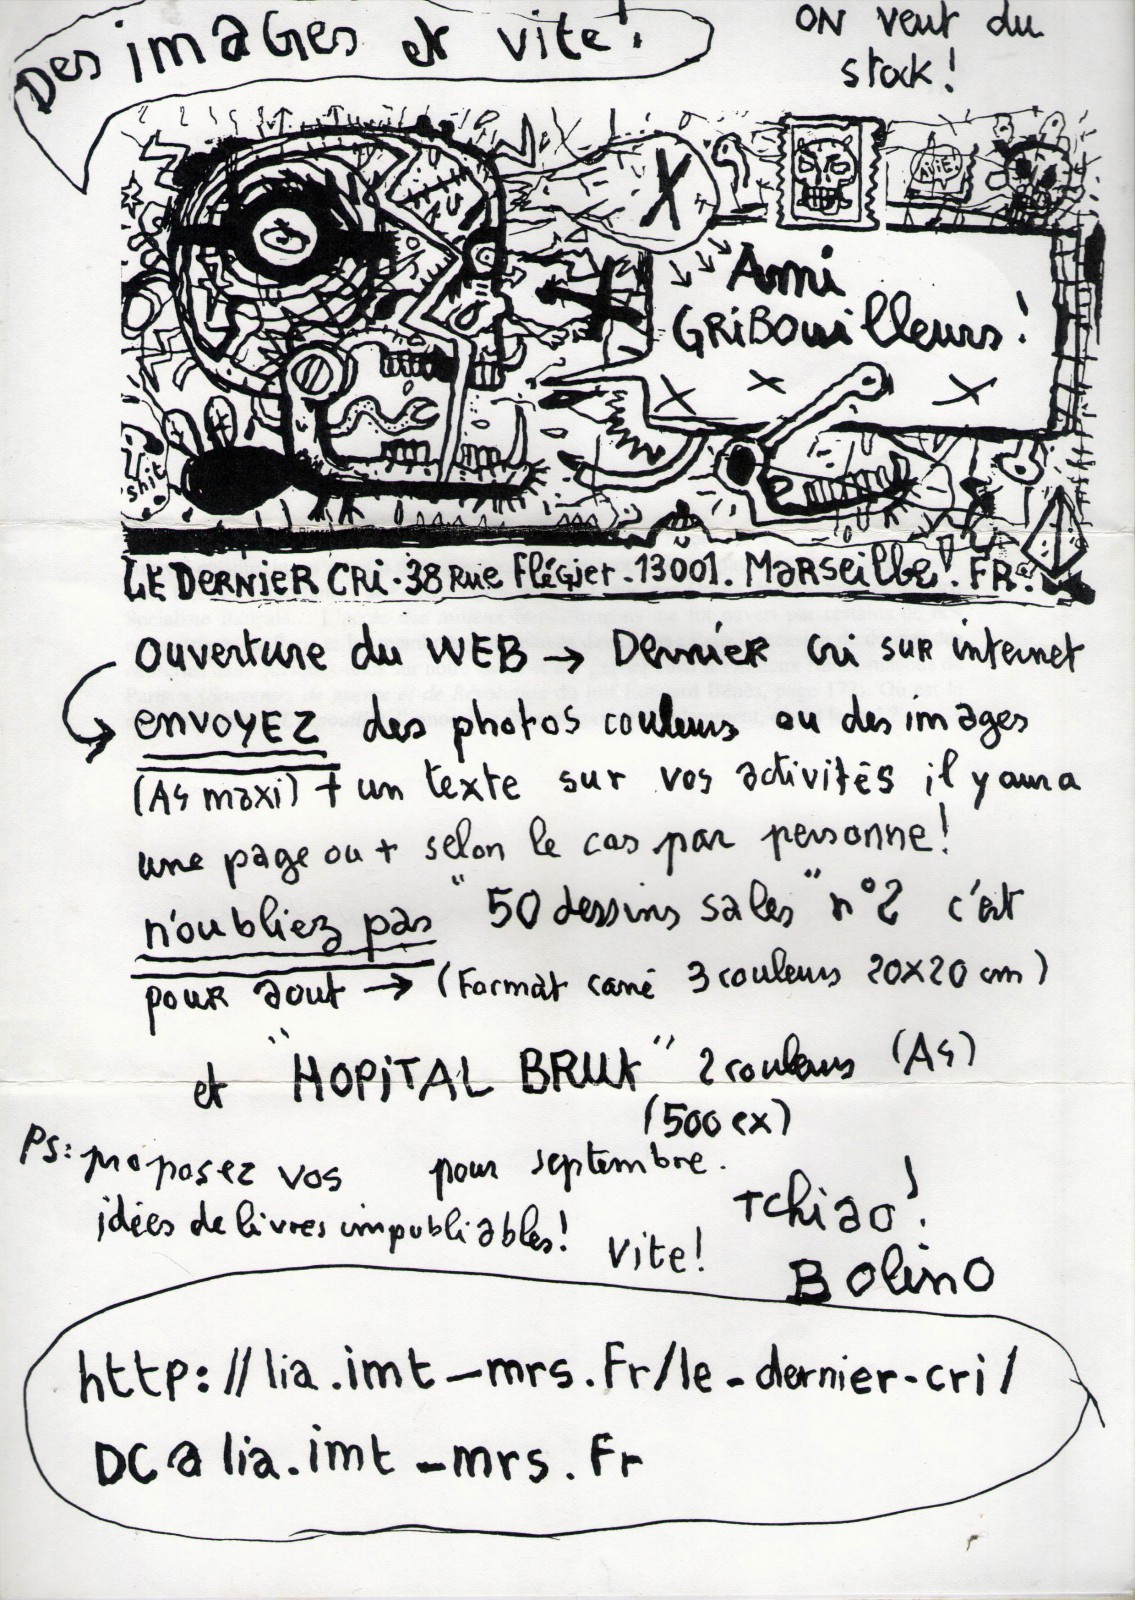 Des images et vite!
ON veut du
stock!
Ami
GRiBouilleurs!
shit
LE DERNiER CRi. 38 Rue Flégier. 13001. MARSeille! . FR.
ouverture du WEB → DerniER cri suR internet
envoyEZ des photos couleurs ou des images
(A4 maxi) + un texte sur vos activités il y aura
une page ou + selon le cas par personne!
n'oubliez pas "50 dessins sales" n°2 c'est
pouR aout → (Format carré 3 couleurs 20x20 cm)
et "HOPiTAL BRUt" 2 couleurs (A4)
(500 ex)
PS: proposez vos pour septembre.
idées de livres impubliables! Vite!
Tchiao!
Bolino
http://lia.imt-mrs.Fr/le-dernier-cri/
DC@lia.imt-mrs.Fr